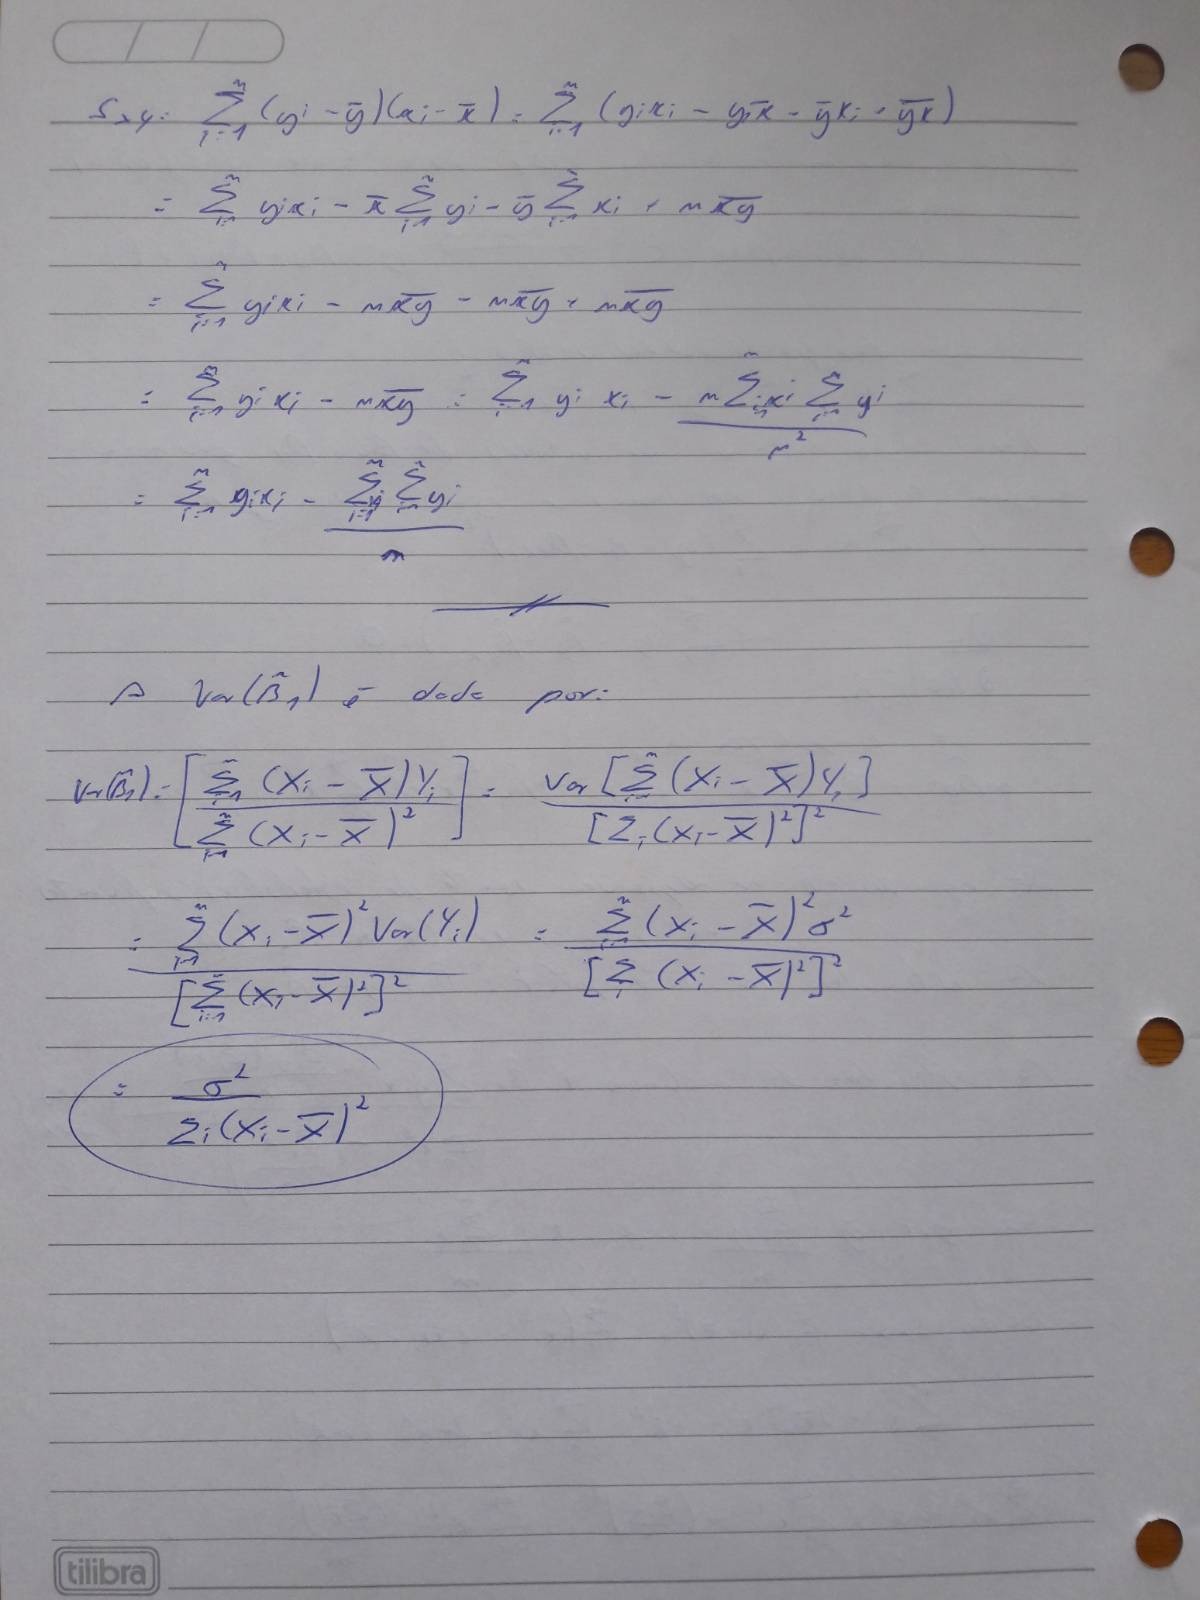 Sxy = ∑_{i=1}^{n} (yi - ȳ)(xi - x̄) = ∑_{i=1}^{n} (yixi - yix̄ - ȳxi + ȳx̄)
= ∑_{i=1}^{n} yixi - x̄ ∑_{i=1}^{n} yi - ȳ ∑_{i=1}^{n} xi + nx̄ȳ
= ∑_{i=1}^{n} yixi - nx̄ȳ - nx̄ȳ + nx̄ȳ
= ∑_{i=1}^{n} yixi - nx̄ȳ = ∑_{i=1}^{n} yi xi - (n∑_{i=1}^{n} xi ∑_{i=1}^{n} yi)/n²
= ∑_{i=1}^{n} yixi - (∑_{i=1}^{n} xi ∑_{i=1}^{n} yi)/n
A Var(β̂1) é dada por:
Var(β̂1) = [∑_{i=1}^{n} (Xi - X̄)Yi / ∑_{i=1}^{n} (Xi - X̄)²] = Var[∑_{i=1}^{n} (Xi - X̄)Yi] / [∑i(Xi - X̄)²]²
= ∑_{i=1}^{n} (Xi - X̄)² Var(Yi) / [∑_{i=1}^{n} (Xi - X̄)²]² = ∑_{i=1}^{n} (Xi - X̄)² σ² / [∑i (Xi - X̄)²]²
= σ² / ∑i(Xi - X̄)²
tilibra